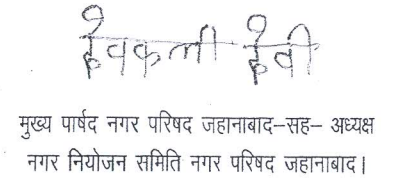 देवकली देवी
मुख्य पार्षद नगर परिषद जहानाबाद-सह- अध्यक्ष
नगर नियोजन समिति नगर परिषद जहानाबाद।